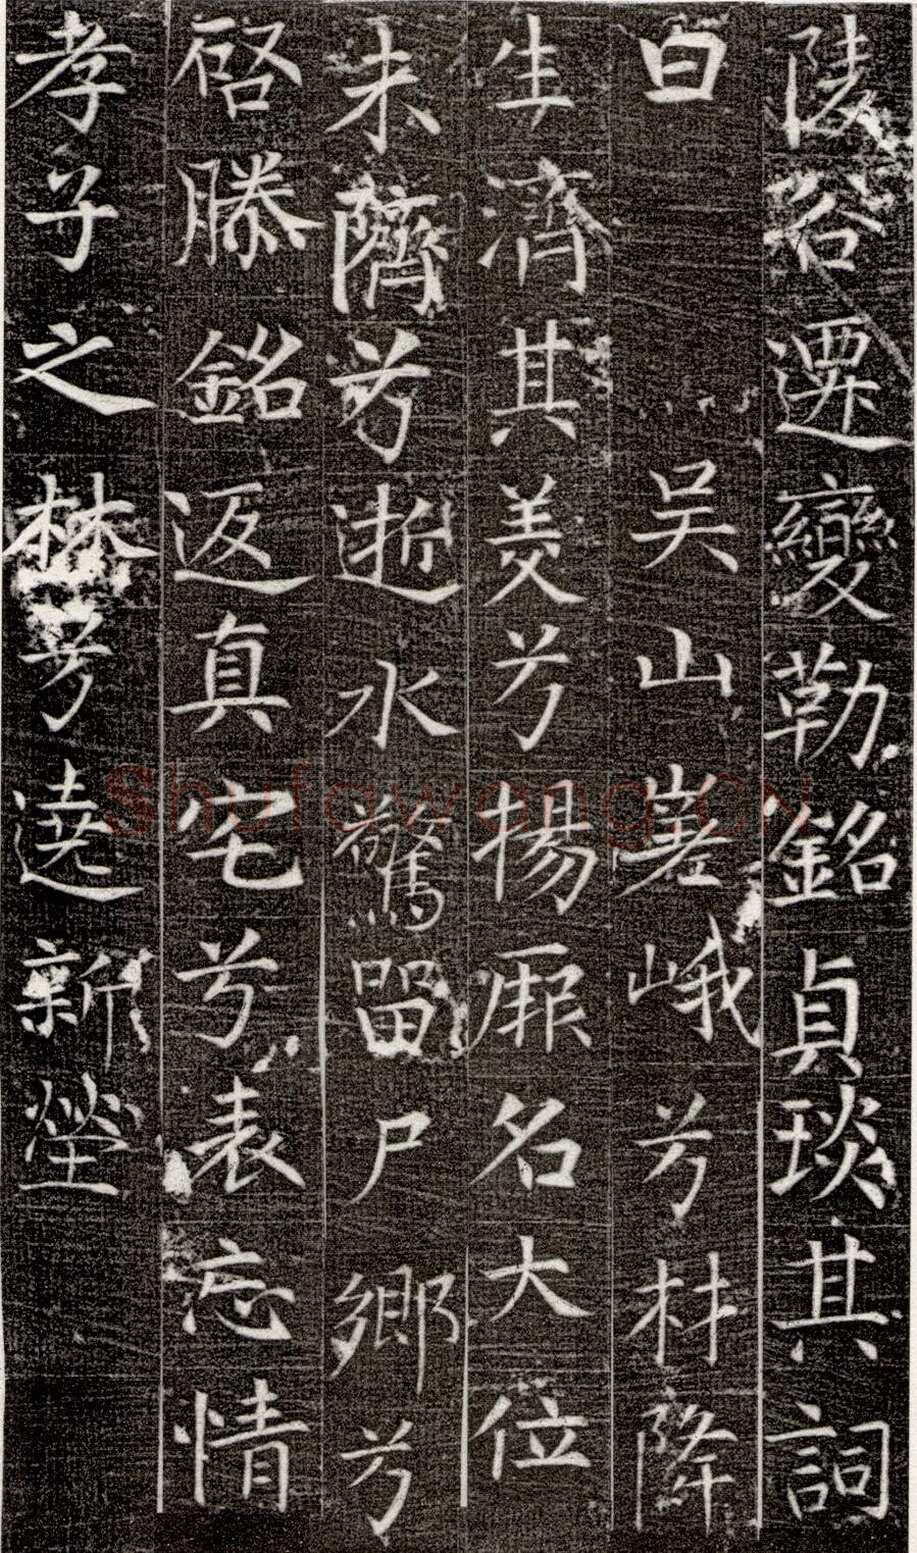 陵谷遷變勒銘貞琰其詞
曰 吳山嵳峨兮材降
生濟其美兮揚厥名大位
未隮兮逝水驚留尸鄉兮
啓滕銘返真宅兮表忘情
孝子之林兮遶新塋
Shufawang.CN